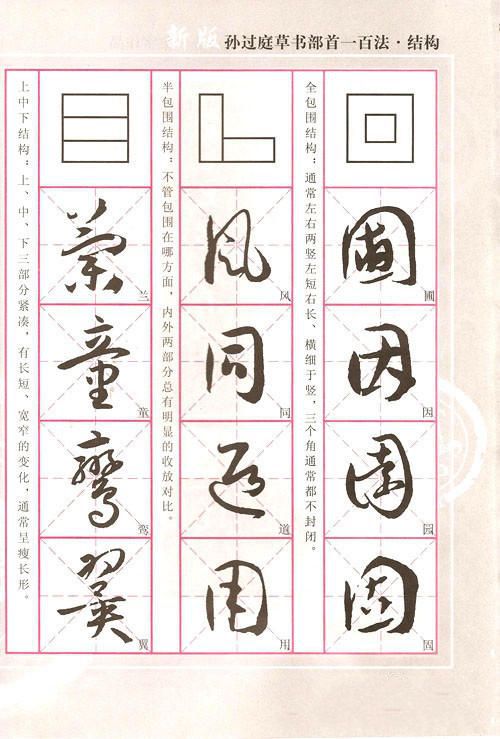 新版 孙过庭草书部首一百法·结构
全包围结构：通常左右两竖左短右长、横细于竖，三个角通常都不封闭。
圃
因
园
固
半包围结构：不管包围在哪方面，内外两部分总有明显的收放对比。
风
同
道
用
上中下结构：上、中、下三部分紧凑，有长短、宽窄的变化，通常呈瘦长形。
兰
童
鸾
翼